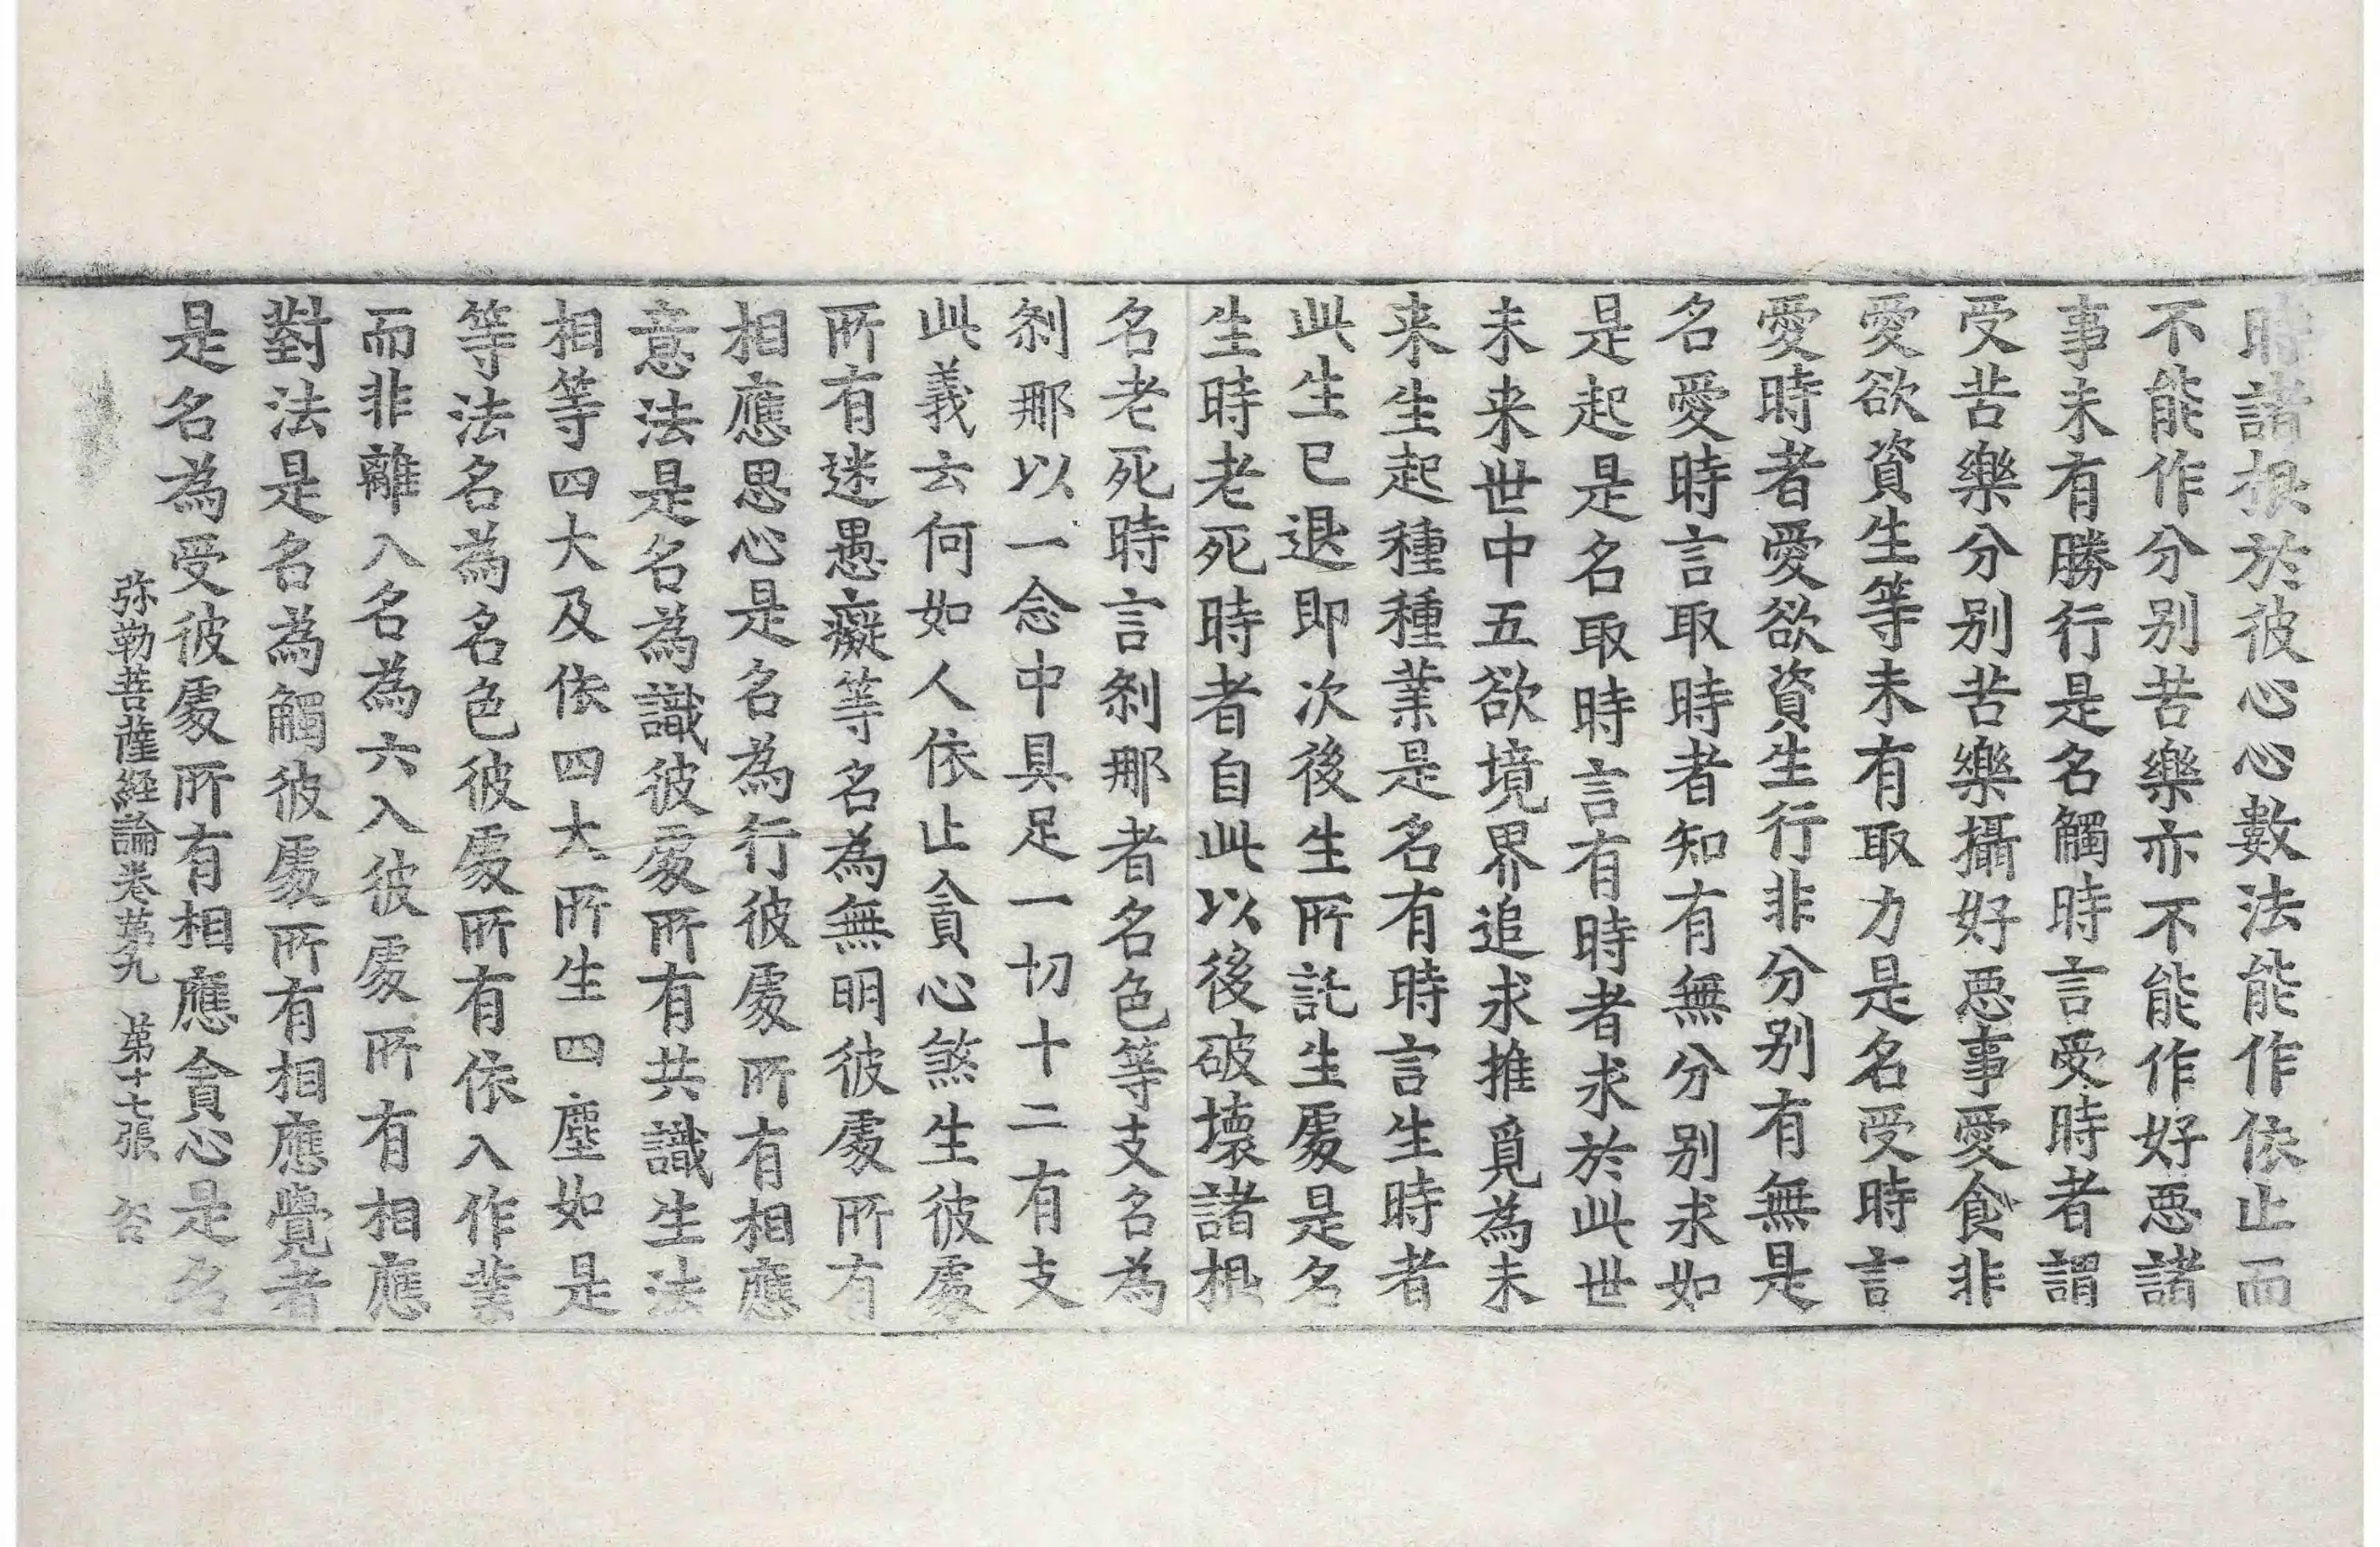 時諸根於彼心心數法能作依止而
不能作分別苦樂亦不能作好惡諸
事未有勝行是名觸時言受時者謂
受苦樂分別苦樂攝好惡事愛食非
愛欲資生等未有取力是名受時言
愛時者愛欲資生行非分別有無是
名愛時言取時者知有無分別求如
是起是名取時言有時者求於此世
未来世中五欲境界追求推覓為未
来生起種種業是名有時言生時者
此生已退即次後生所託生處是名
生時老死時者自此以後破壞諸根
名老死時言剎那者名色等支名為
剎那以一念中具足一切十二有支
此義云何如人依止貪心煞生彼處
所有迷愚癡等名為無明彼處所有
相應思心是名為行彼處所有相應
意法是名為識彼處所有共識生法
相等四大及依四大所生四塵如是
等法名為名色彼處所有依入作業
而非離入名為六入彼處所有相應
對法是名為觸彼處所有相應覺者
是名為受彼處所有相應貪心是名
弥勒菩薩経論卷苐九 苐十七張 谷